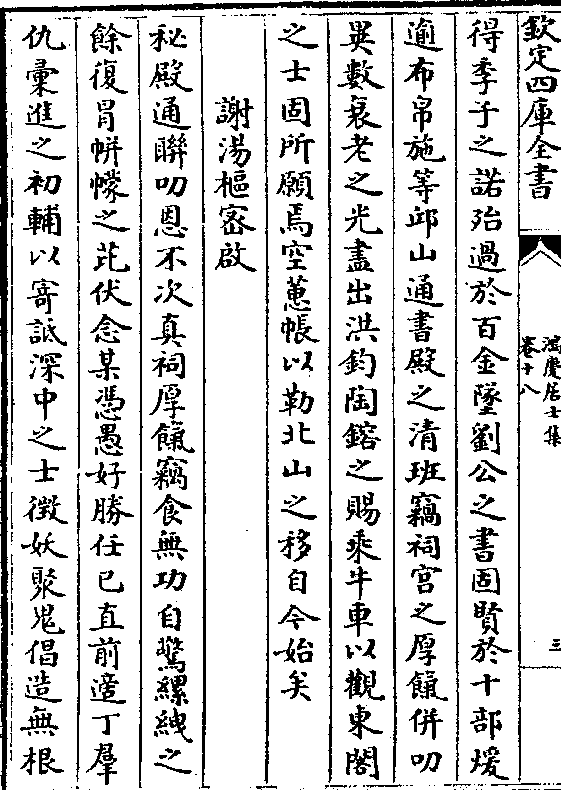 欽定四庫全書
鴻慶居士集
卷十八
三
得季子之諾殆過於百金墜劉公之書固賢於十部煖
逾布帛施等邱山通書殿之清班竊祠宫之厚餼併叨
異數衰老之光盡出洪鈞陶鎔之賜乘牛車以觀東閣
之士固所願焉空蕙帳以勒北山之移自今始矣
謝湯樞宻啟
秘殿通聯叨恩不次真祠厚餼竊食無功自驚縲絏之
餘復冒帡幪之芘伏念某憑愚好勝任已直前適丁羣
仇彙進之初輔以寄詆深中之士徴妖聚鬼倡造無根